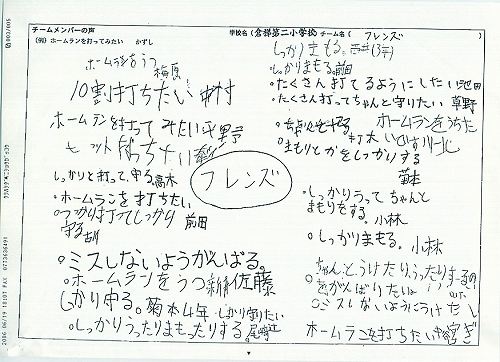 チームメンバーの声
学校名(倉梯第二小学校) チーム名( フレンズ )
(例) ホームランを打ってみたい かずし
ホームランをうつ 梅原
10割打ちたい 中村
ホームランを打ってみたい 平野
ヒット打ちたい
しっかりと打って、守る 高木
・ホームランを打ちたい
・しっかり打ってしっかり守る 前田
・ミスしないようがんばる。
・ホームランをうつ 佐藤
しっかり守る。菊本4年 しっかり守りたい
・しっかりうったりまもったりする。尾崎
フレンズ
しっかりまもる。
・しっかりまもる。前田
・たくさん打てるようにしたい 池田
・たくさん打ってちゃんと守りたい 草野
ホームランをうちたい
・まもりとかをしっかりする
・しっかりうってちゃんとまもりをする。小林
・しっかりまもる。小林
ちゃんとうけたりうったりする
・あがんばりたい
・ミスしないようにうけたい
ホームランを打ちたい
2006 06/19 18:01 FAX 0773636491
002/005